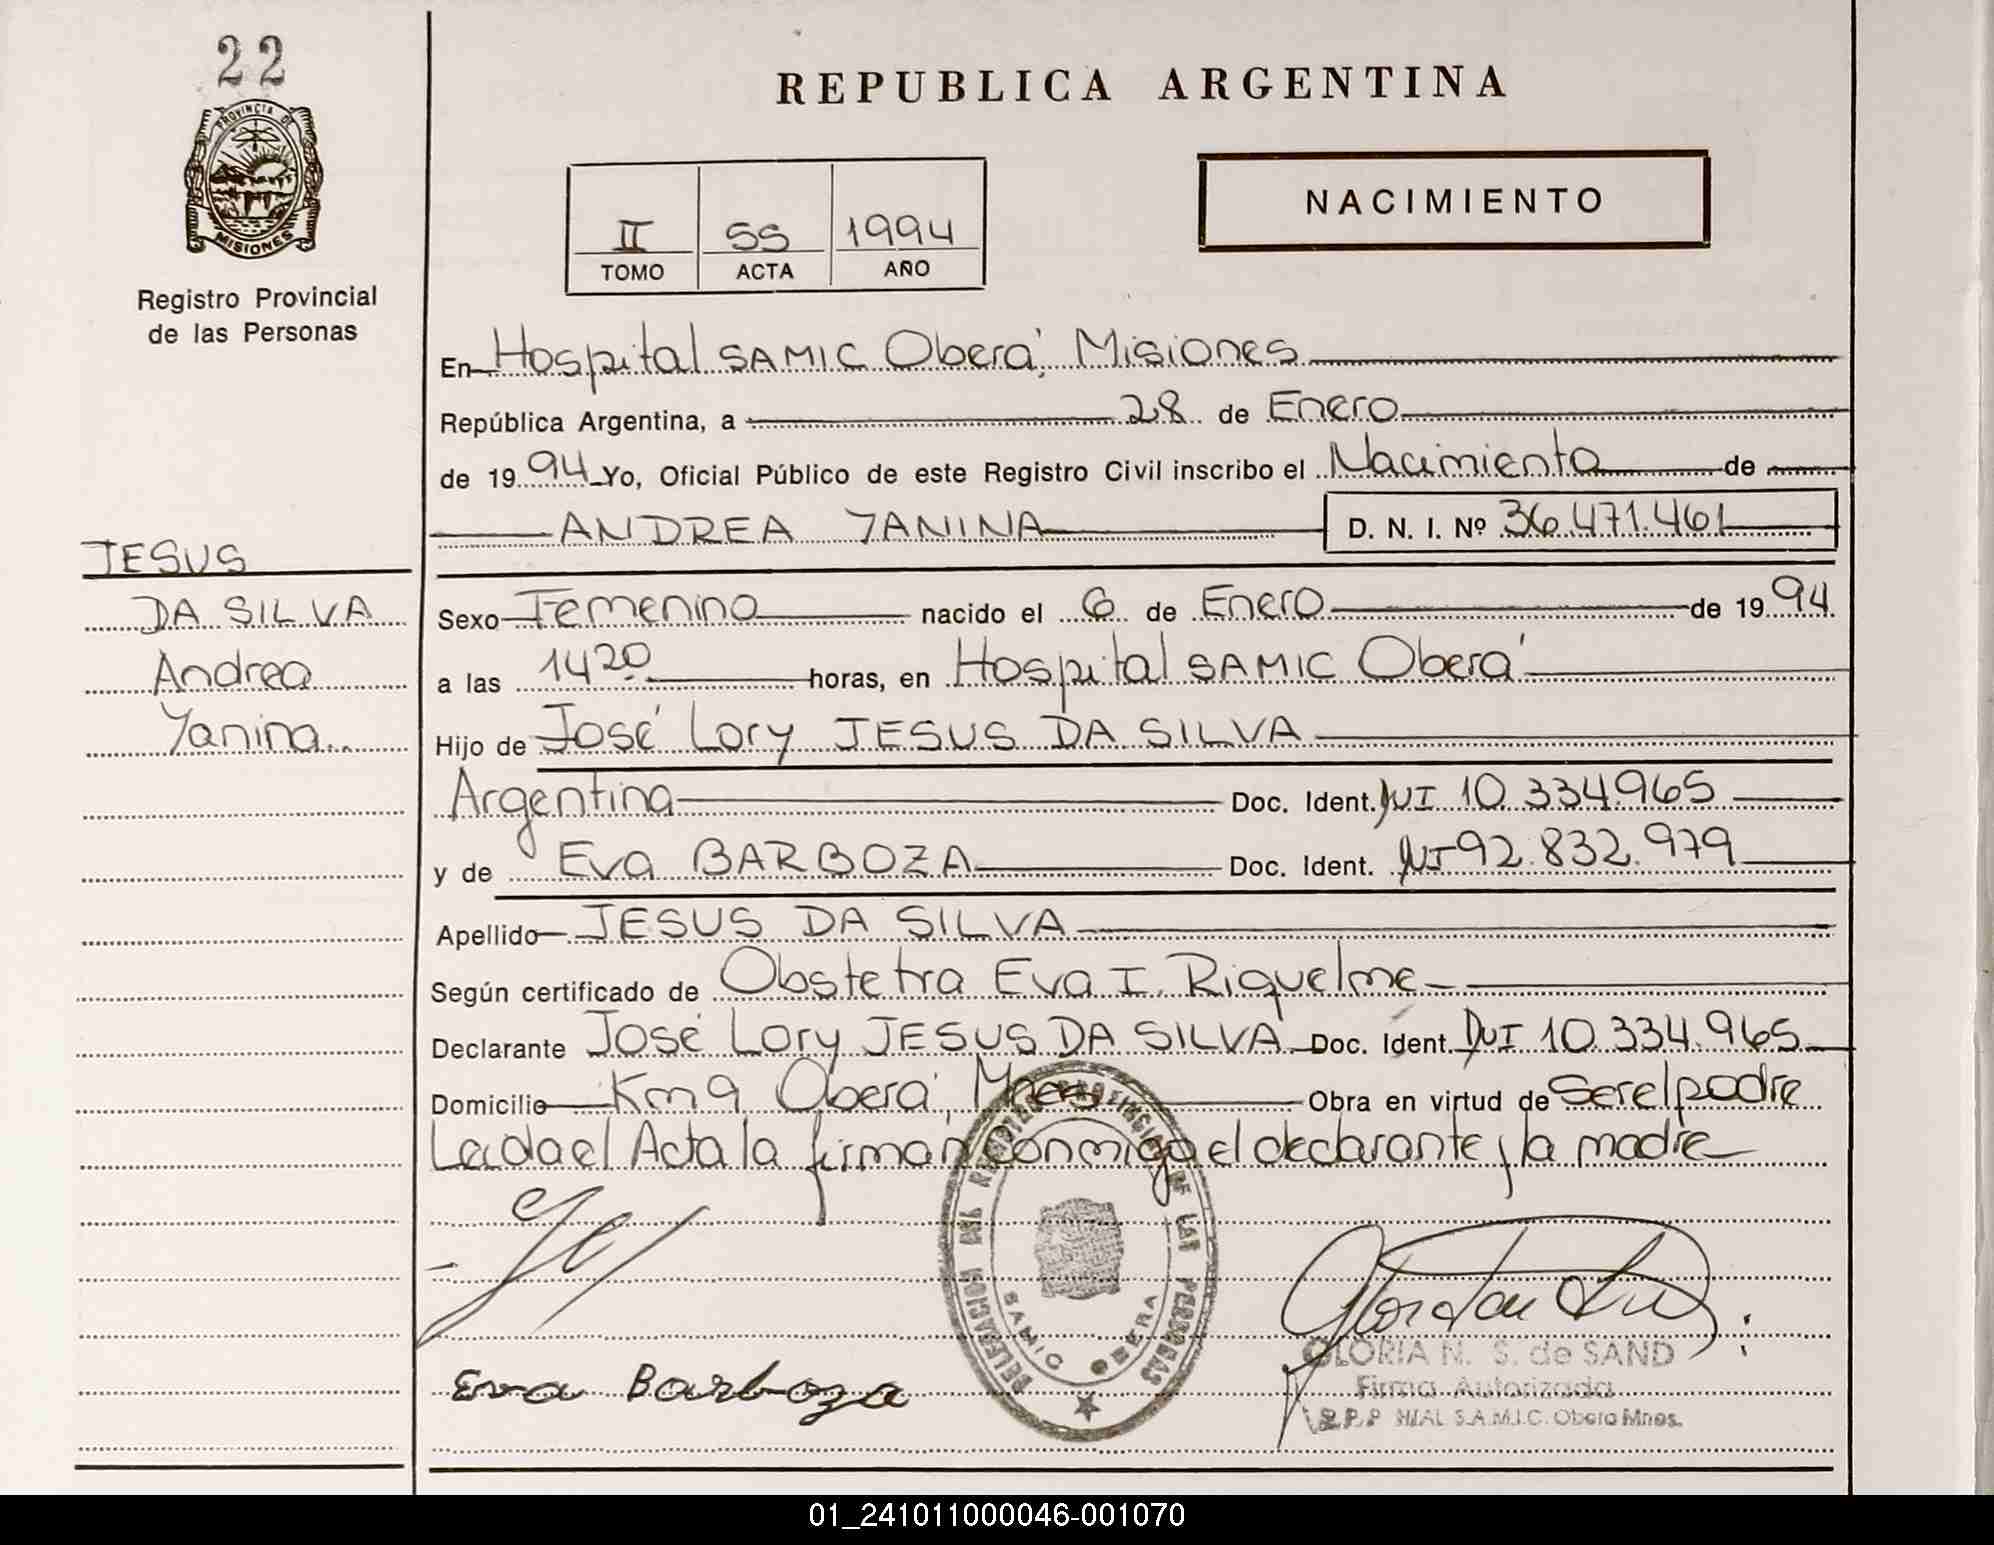 22
PROVINCIA DE
MISIONES
Registro Provincial
de las Personas
REPUBLICA ARGENTINA
II SS 1994
TOMO ACTA AÑO
NACIMIENTO
En Hospital SAMIC Oberá, Misiones
República Argentina, a 28 de Enero
de 1994 Yo, Oficial Público de este Registro Civil inscribo el Nacimiento de
ANDREA YANINA D. N. I. Nº 36.471.461
JESUS
DA SILVA
Andrea
Yanina
Sexo Femenino nacido el 6 de Enero de 1994
a las 1420 horas, en Hospital SAMIC Oberá
Hijo de José Lory JESUS DA SILVA
Argentina Doc. Ident. DNI 10.334.965
y de Eva BARBOZA Doc. Ident. DNI 92.832.979
Apellido JESUS DA SILVA
Según certificado de Obstetra Eva I. Riquelme
Declarante José Lory JESUS DA SILVA Doc. Ident. DNI 10.334.965
Domicilio Km 9, Oberá, Mnes Obra en virtud de Ser el padre
Leída el Acta la firman conmigo el declarante y la madre
DELEGACION DEL REGISTRO PROVINCIAL DE LAS PERSONAS
SAMIC OBERA
Eva Barboza
GLORIA N. S. de SAND
Firma Autorizada
R.P.P. S.A.M.I.C. Obera Mnes.
01_241011000046-001070